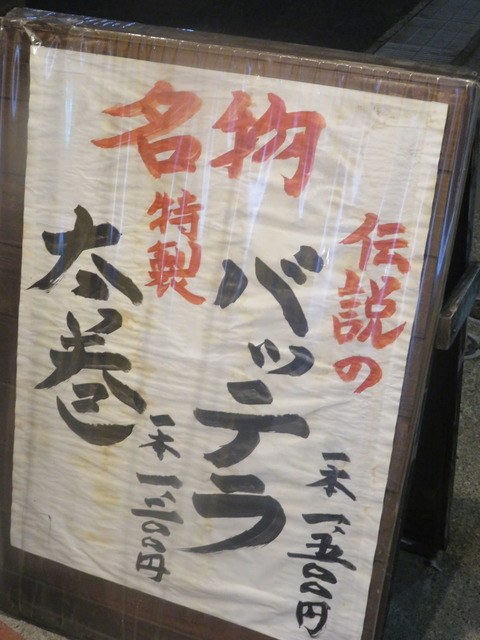 名物
伝説の
バッテラ
一本 一、五〇〇円
特製
太巻
一本 一、三〇〇円